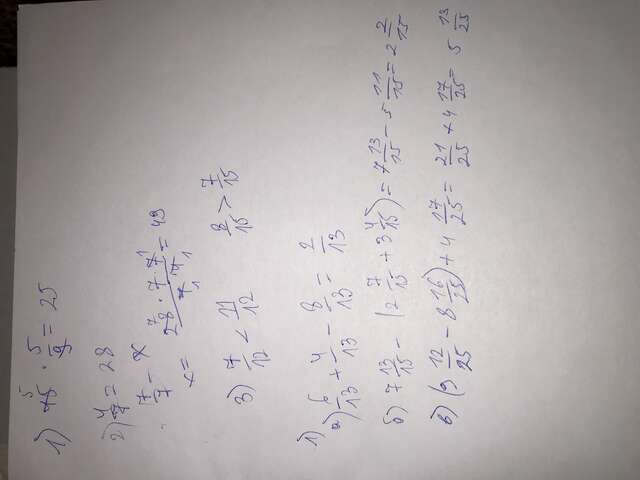 1) 45 · 5/9 = 25
5
2) 4/7 = 28
7/7 - x
x = 28 · 7 · 7 / 7 · 4 = 49
7 1 1 1
3) 7/12 < 11/12 8/15 > 7/15
1)
а) 6/13 + 4/13 - 8/13 = 2/13
б) 7 13/15 - (2 7/15 + 3 4/15) = 7 13/15 - 5 11/15 = 2 2/15
в) (9 12/25 - 8 16/25) + 4 17/25 = 21/25 + 4 17/25 = 5 13/25